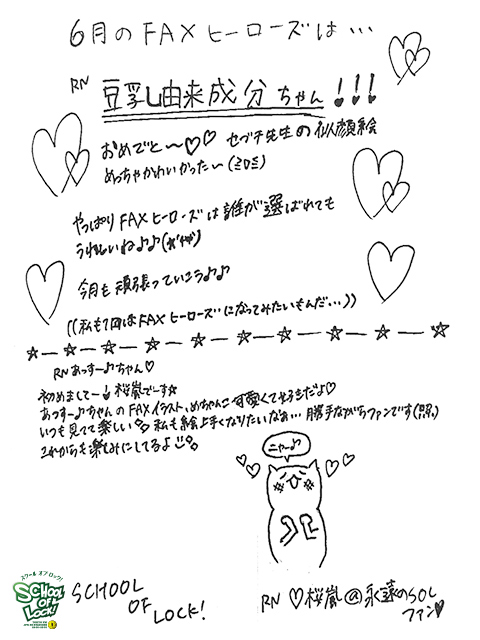 6月のFAXヒーローズは…
RN 豆乳由来成分ちゃん!!!
おめでと〜♡♡ セブチ先生の似顔絵
めっちゃかわいかった〜(≧▽≦)
やっぱりFAXヒーローズは誰が選ばれても
うれしいね♪♪
今月も頑張っていこう♪♪
((私も1回はFAXヒーローズになってみたいもんだ…))
☆―☆―☆―☆―☆―☆―☆―☆―☆―☆
RNあっすー♪ちゃん♡
初めまして〜! 桜嵐でーす☆
あっすー♪ちゃんのFAXイラスト、めちゃんこ可愛くて大好きだよ♡
いつも見てて楽しい 私も絵上手くなりたいなぁ… 勝手ながらファンです(照)
これからも楽しみにしてるよ
ニャー♪
スクール オブ ロック!
SCHOOL OF LOCK!
SCHOOL
OF
LOCK!
RN ♡桜嵐@永遠のSOL
ファン♡